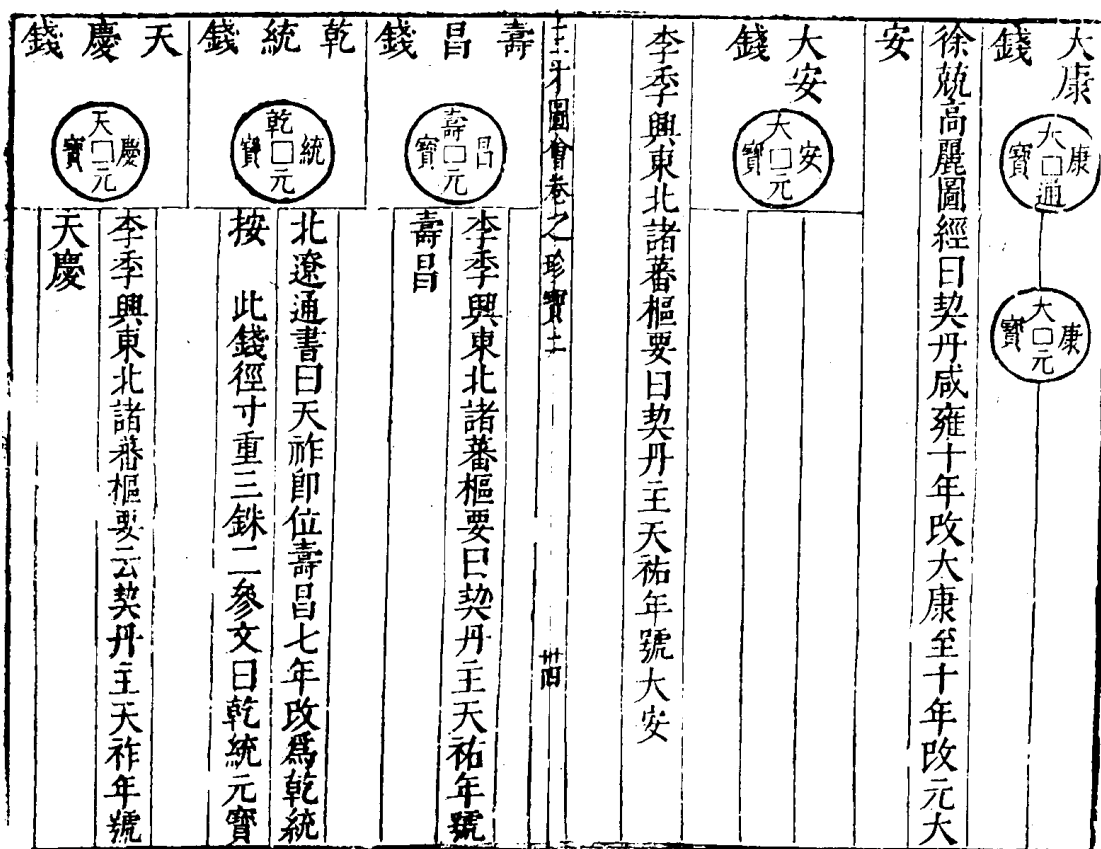 大康
錢
大康通寶
大康元寶
徐兢高麗圖經曰契丹咸雍十年改大康至十年改元大
安
大安
錢
大安元寶
李季興東北諸蕃樞要曰契丹主天祐年號大安
三才圖會卷之珍寶二 卅四
壽昌錢
壽昌元寶
李季興東北諸蕃樞要曰契丹主天祐年號
壽昌
乾統錢
乾統元寶
北遼通書曰天祚即位壽昌七年改爲乾統
按 此錢徑寸重三銖二參文曰乾統元寶
天慶錢
天慶元寶
李季興東北諸蕃樞要云契丹主天祚年號
天慶